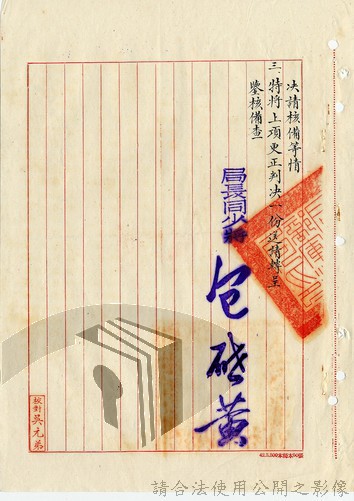 决請核備等情
三、特將上項更正判决一份送請轉呈
鑒核備查
局長同少將
包啟黃
校對 吳元弟
請合法使用公開之影像